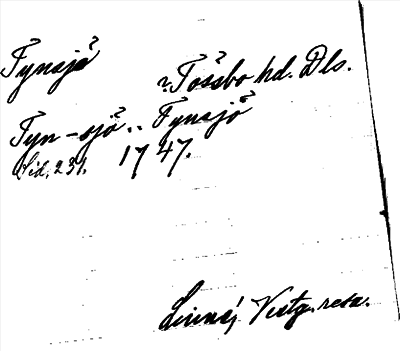 Tynsjö ? Tössbo hd. Dls.
Tyn-sjö .. Tynsjö
Sid. 231. 1747.
Linné, Vestg. resa.